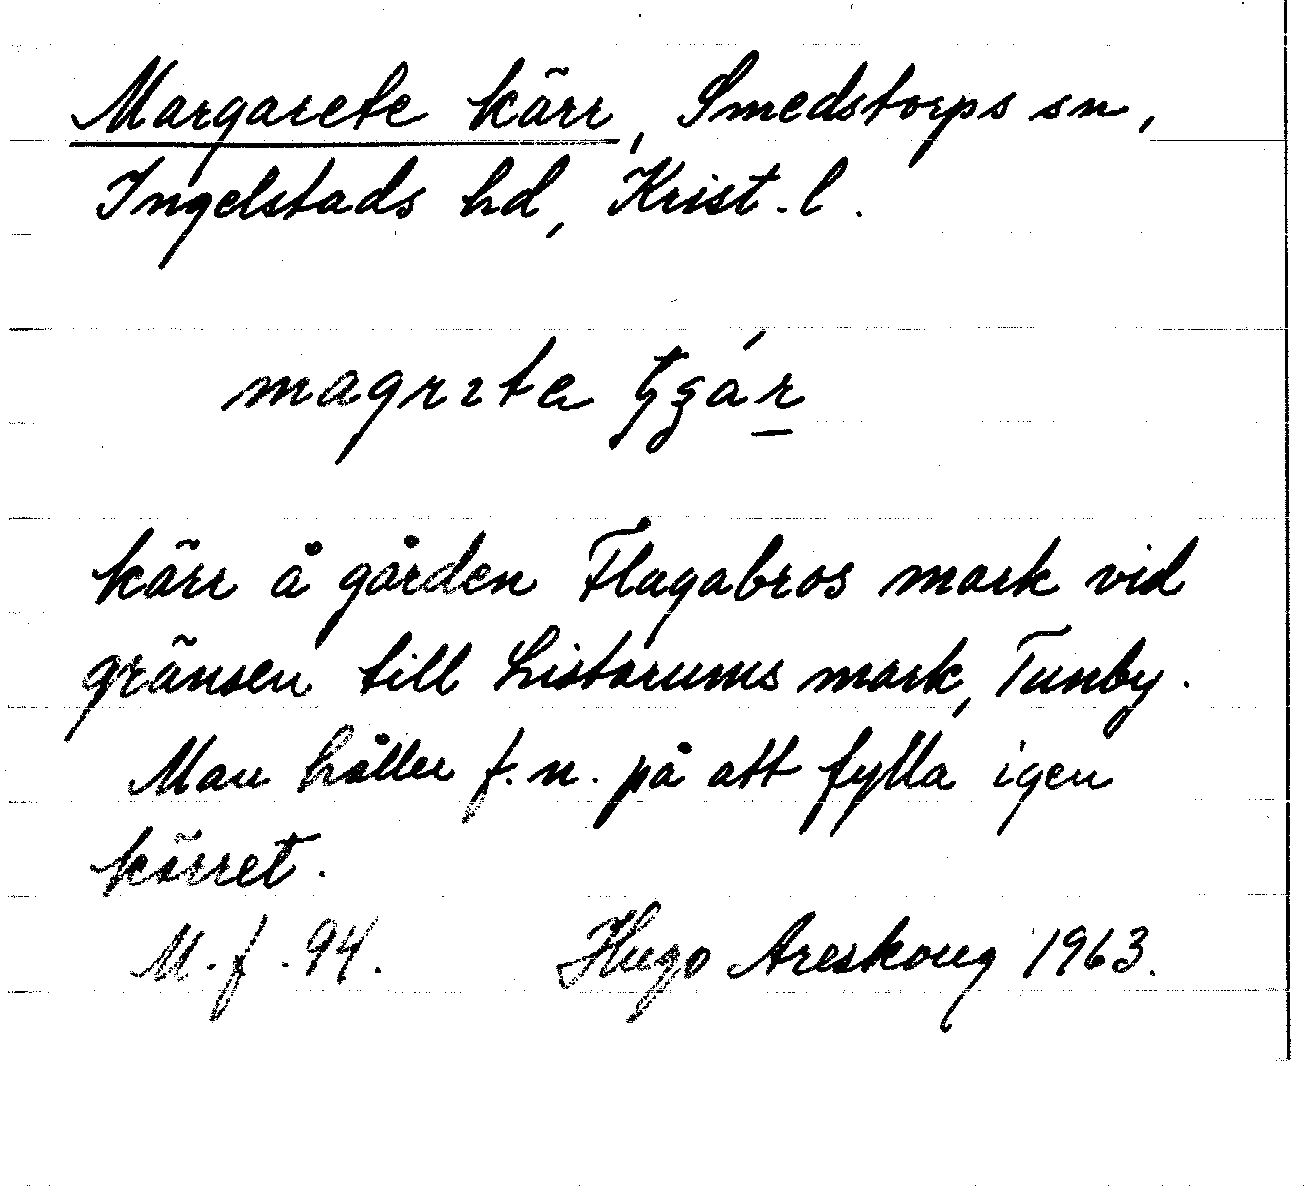 Margarete kärr, Smedstorps sn,
Ingelstads hd, Krist. l.
kärr å gården Flagabros mark vid
gränsen till Listarums mark, Tunby.
Man håller f. n. på att fylla igen
kärret.
M. f. 94. Hugo Areskoug 1963.